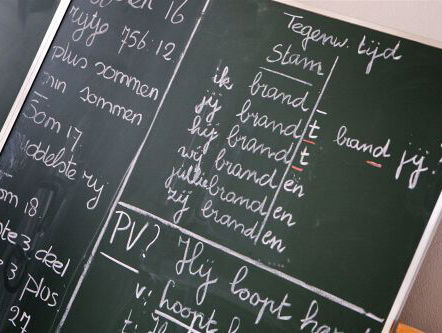 16
rijtje 756:12
plus sommen
min sommen
Som 17
middelste rij
Som 18
3 deel
3 plus
27
Tegenw. tijd
Stam
ik brand _
jij brand t brand jij?
hij brand t
wij brand en
jullie brand en
zij brand en
PV? Hij loopt
v: loopt
t: